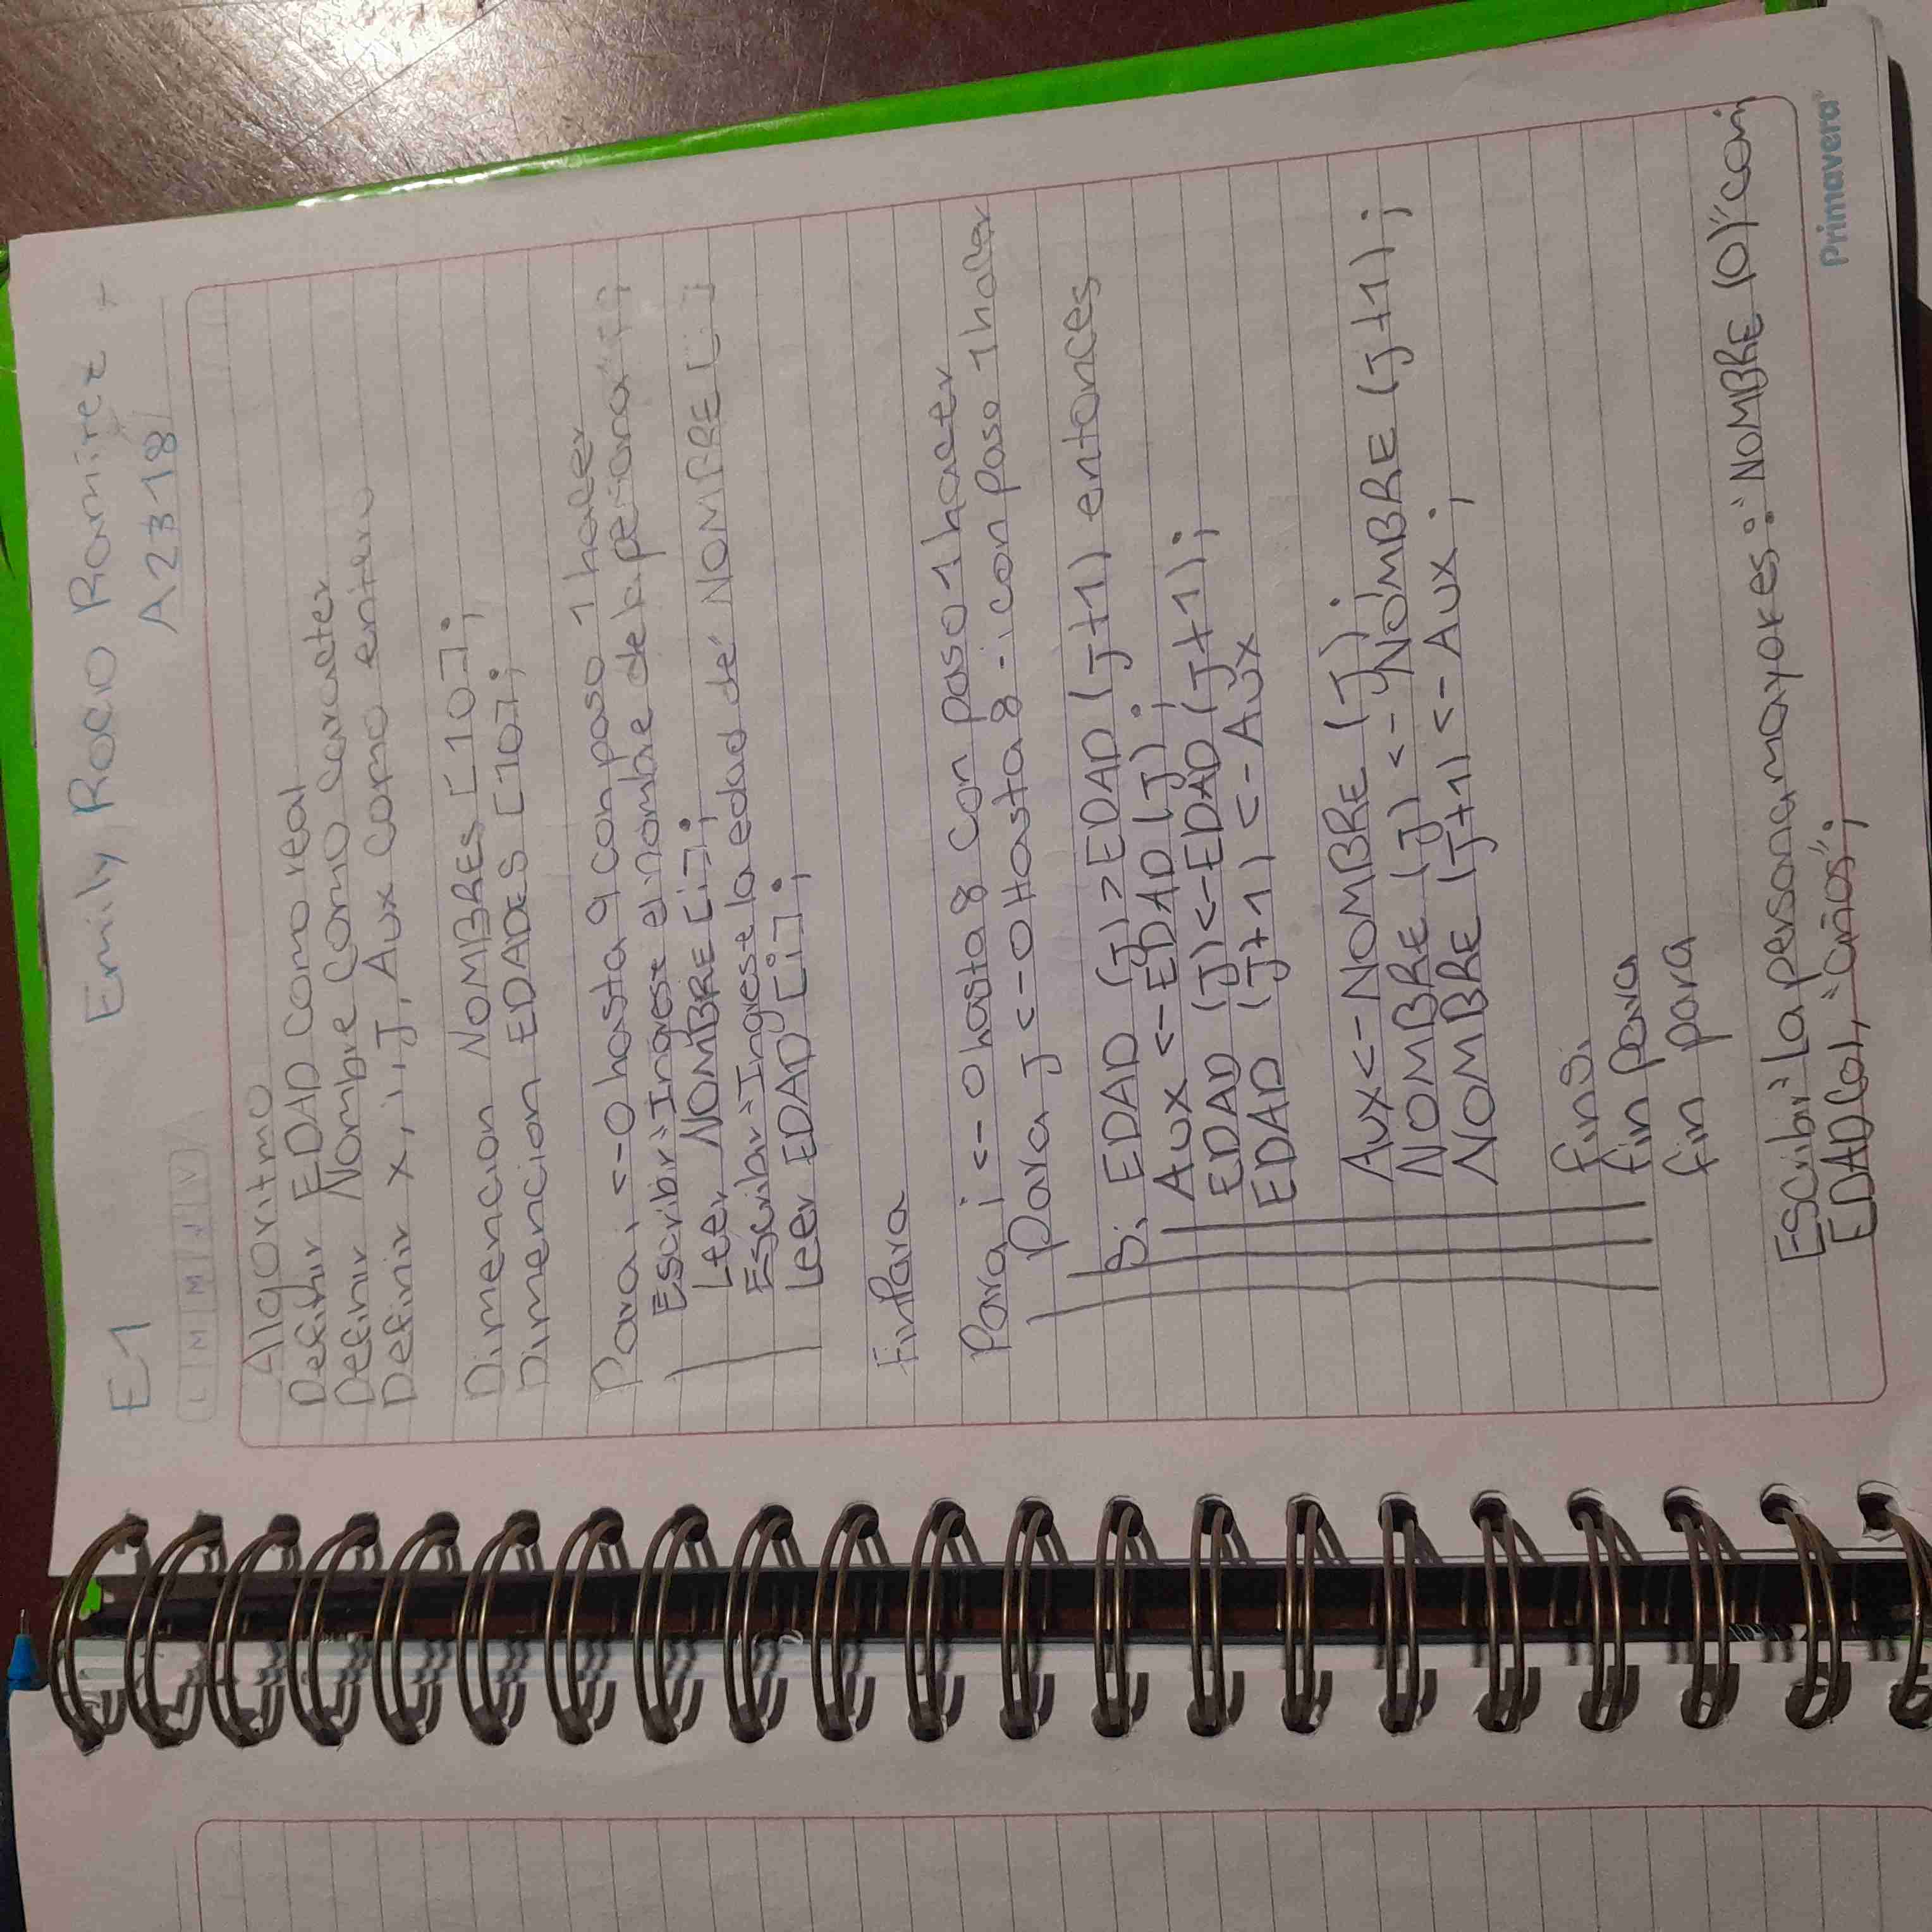 E1 Emily Rocio Ramirez
A2318
L M M J V
Allgoritmo
Definir EDAD como real
Definir Nombre como caracter
Definir x, i, J, Aux como entero
Dimencion NOMBRES [10];
Dimencion EDADES [10];
Para i <-0 hasta 9 con paso 1 hacer
Escribir "Ingrese el nombre de la persona" [i]
Leer NOMBRE [i];
Escribir "Ingrese la edad de" NOMBRE [i]
Leer EDAD [i];
FinPara
Para i <-0 hasta 8 con paso 1 hacer
Para J <-0 Hasta 8-i con paso 1 hacer
Si EDAD (J) > EDAD (J+1) entonces
Aux <-EDAD (J);
EDAD (J) <-EDAD (J+1);
EDAD (J+1) <-Aux
Aux <-NOMBRE (J);
NOMBRE (J) <-NOMBRE (J+1);
NOMBRE (J+1) <-Aux;
finsi
fin para
fin para
Escribir "La persona mayor es:" NOMBRE (0) "con"
EDAD [0], "años";
Primavera